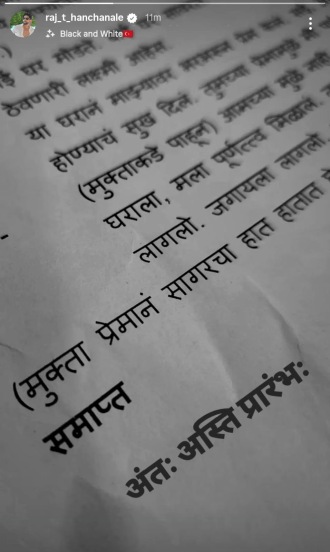 raj_t_hanchanale 11m
Black and White
ठेवणारी लक्ष्मी
या घरानं माझ्यावर
होण्याचं सुख दिलं. तुमच्या
(मुक्ताकडे पाहून) आमच्या मुळे
घराला, मला पूर्णत्त्व मिळालं.
लागलो. जगायला लागलो.
(मुक्ता प्रेमानं सागरचा हात हातात
समाप्त
अंतः अस्ति प्रारंभः